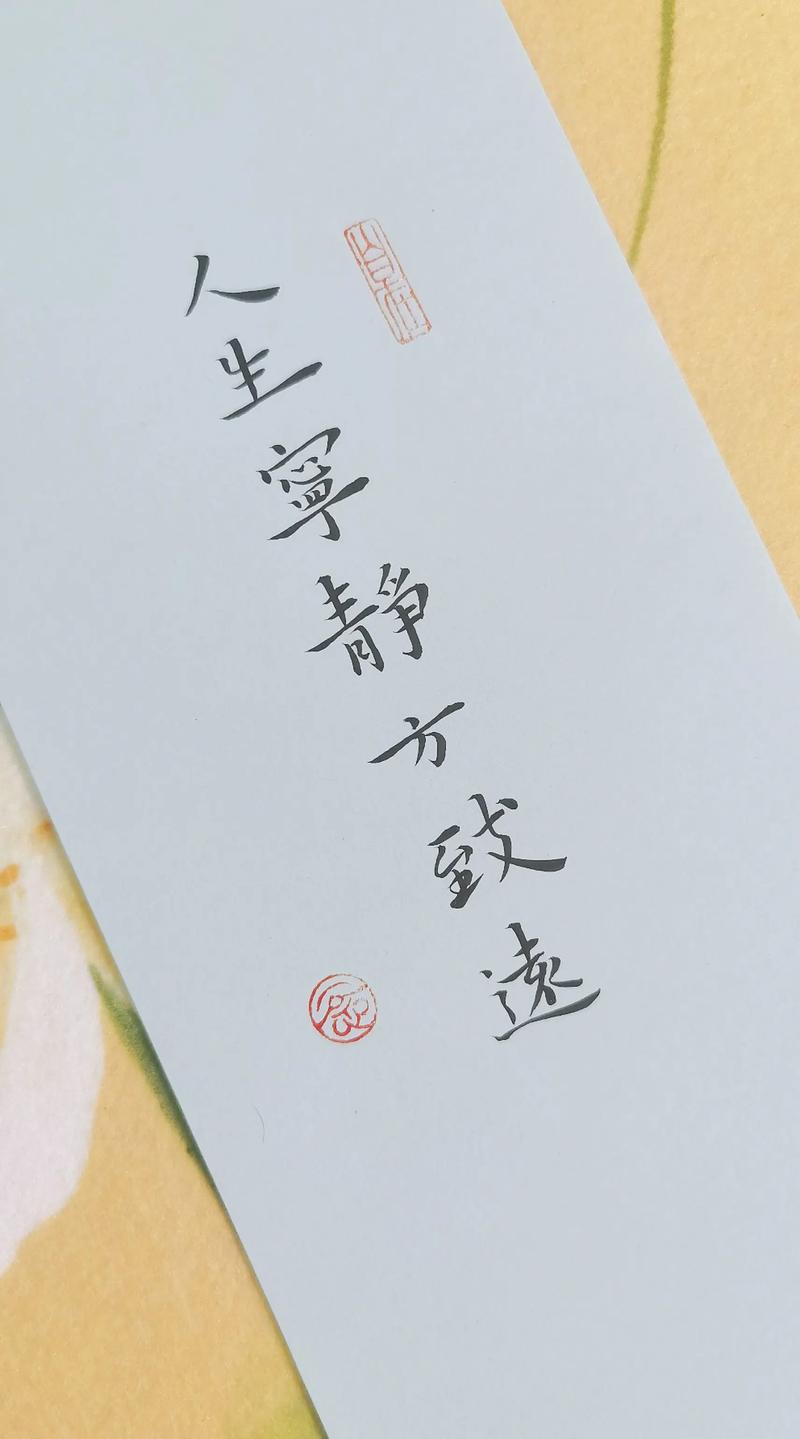 人生寧靜方致遠